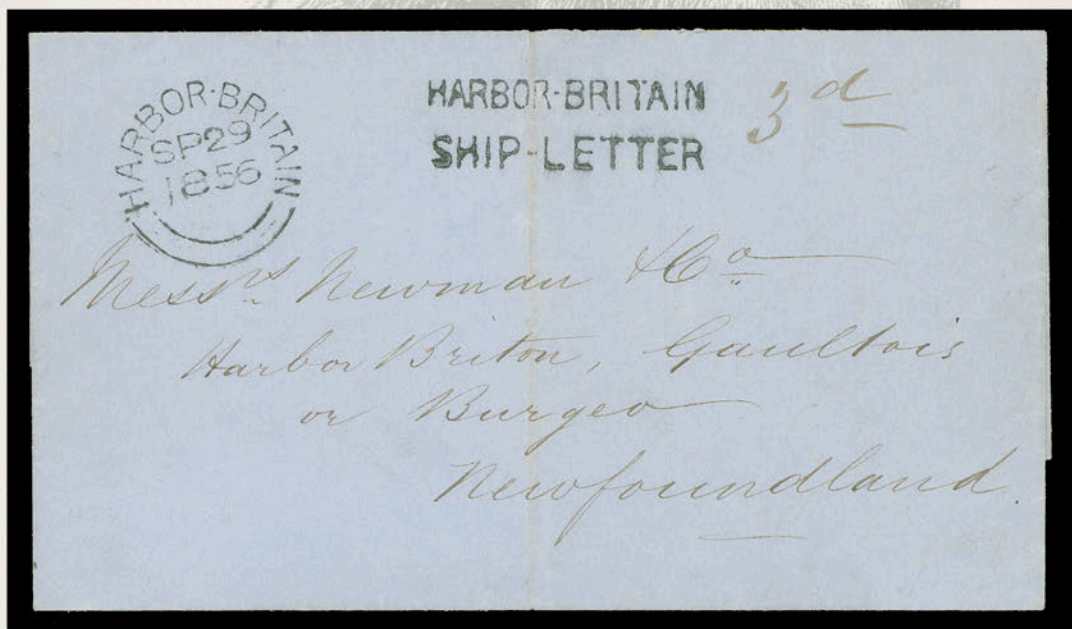 HARBOR-BRITAIN
SP 29
1856
HARBOR-BRITAIN
SHIP-LETTER
3d
Messrs Newman & Co
Harbor Briton, Gaultois
or Burgeo
Newfoundland